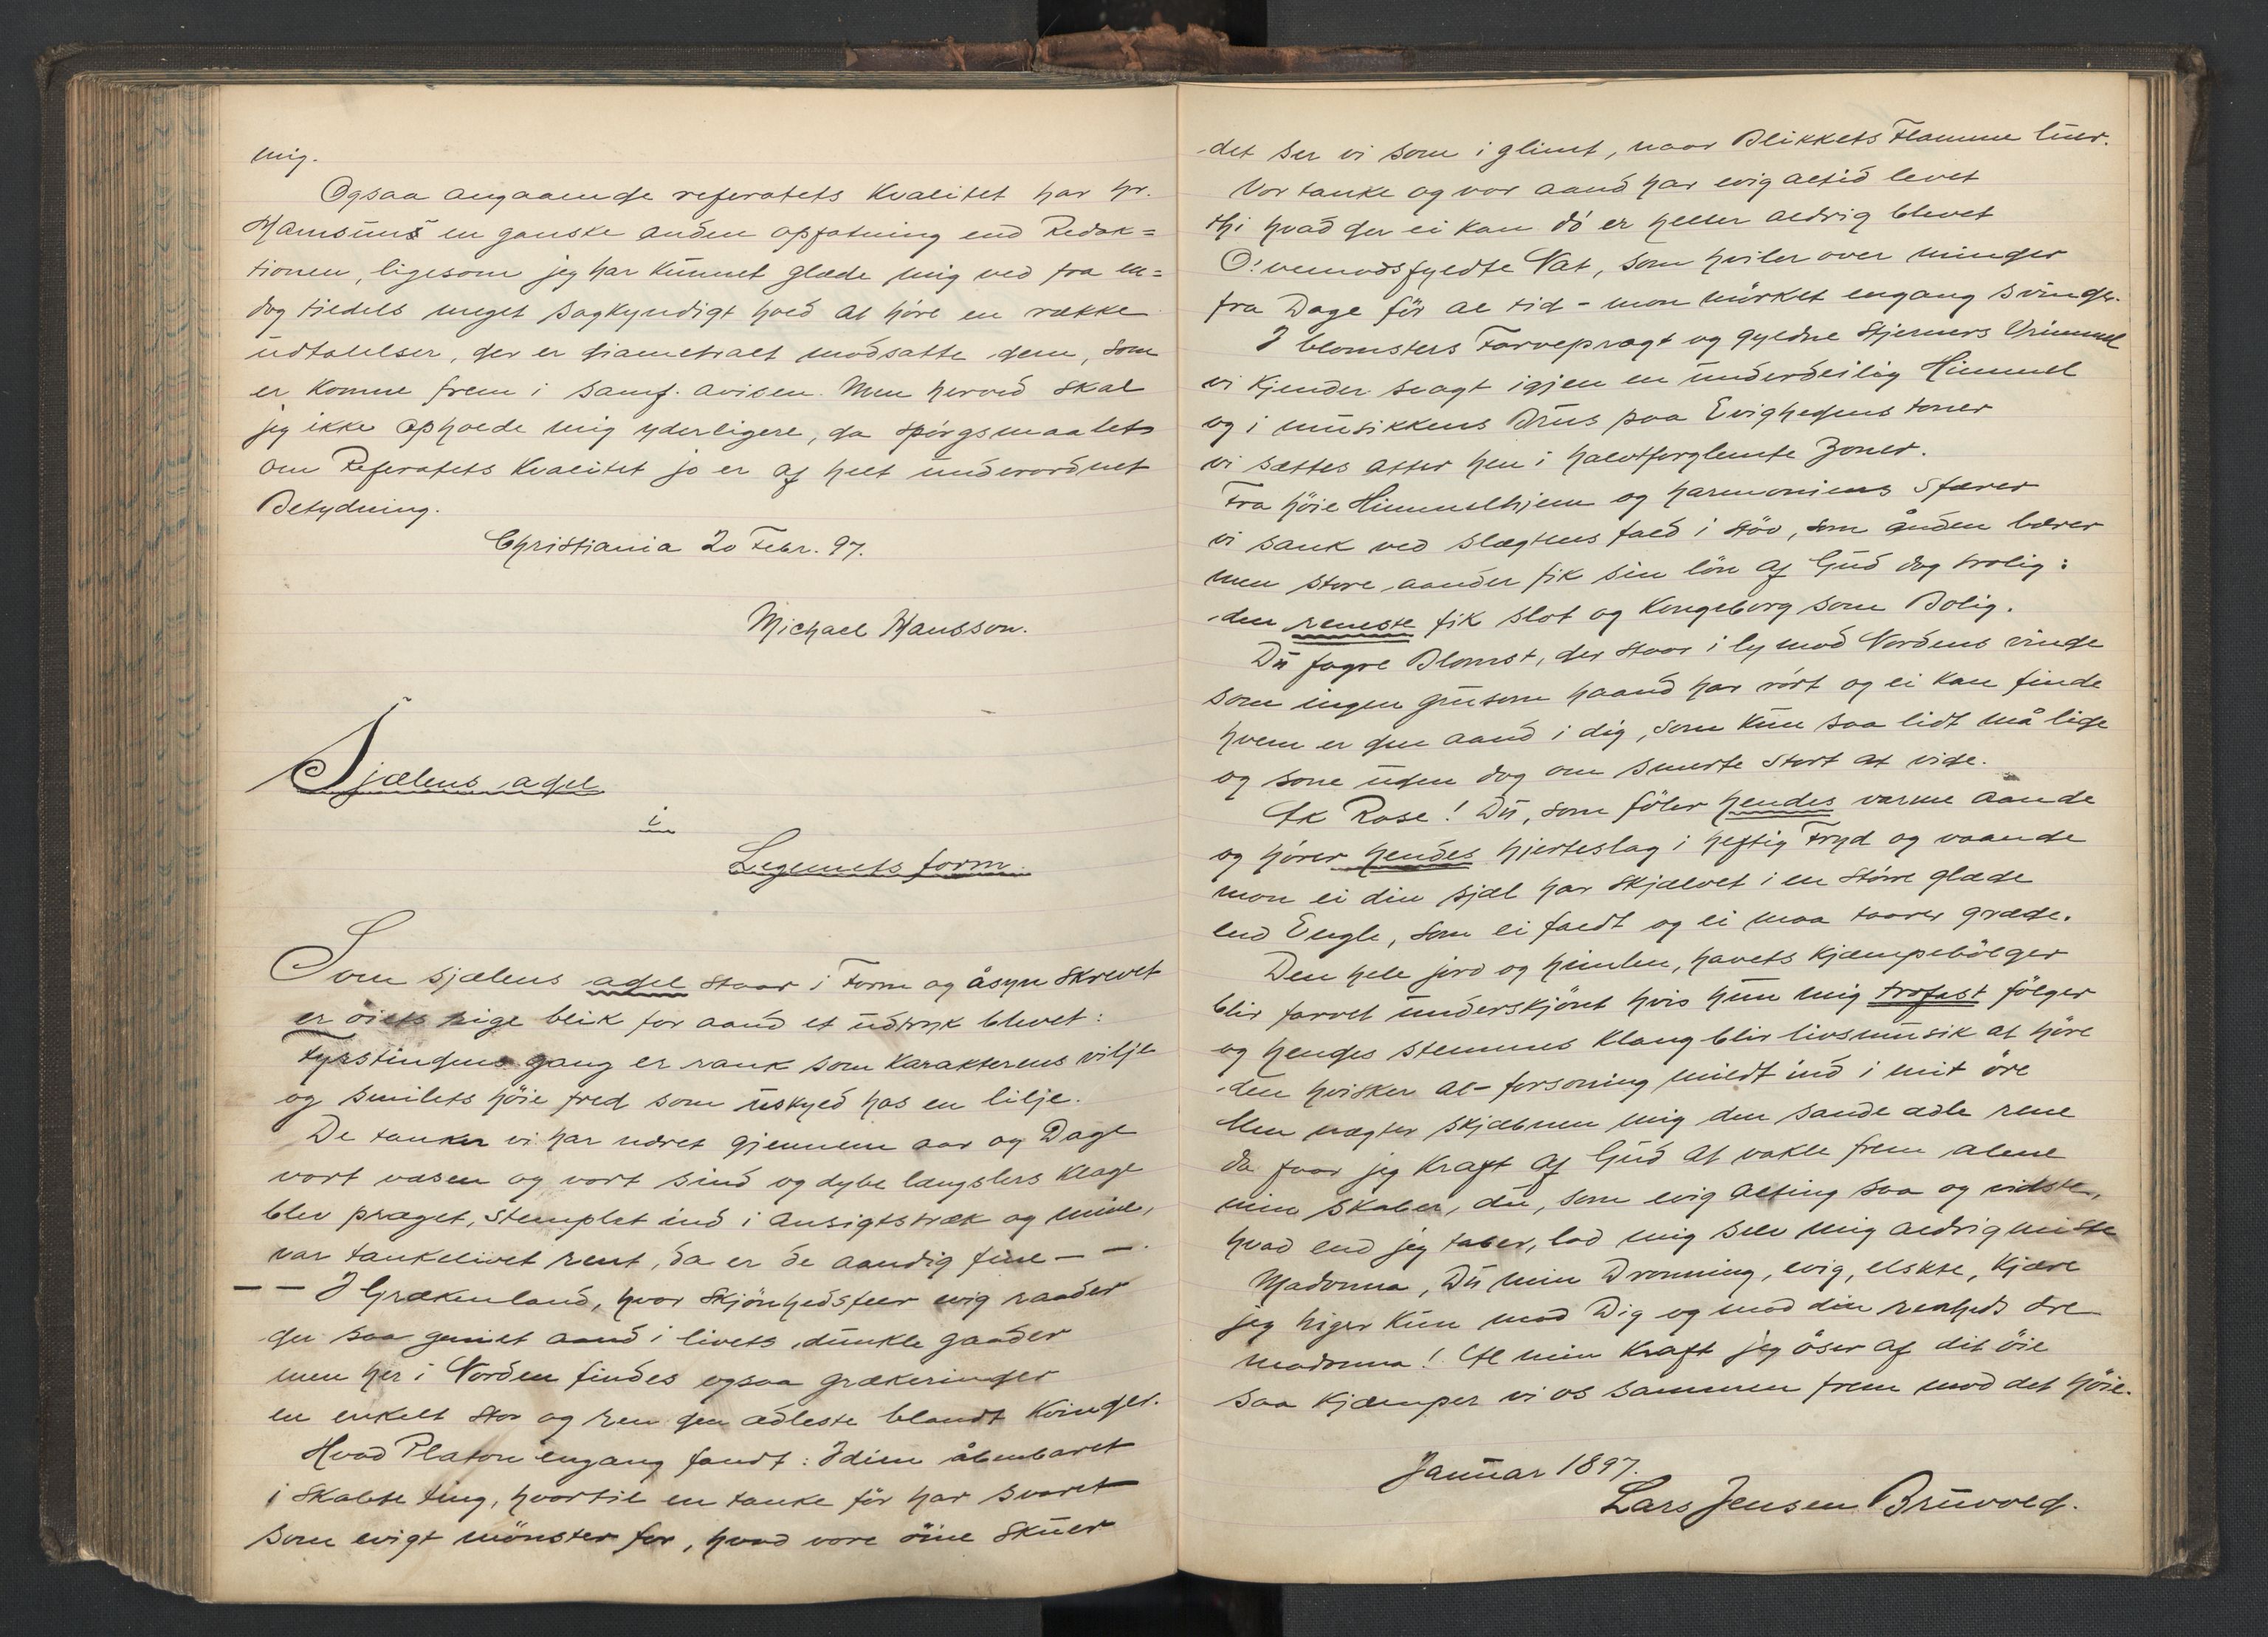 mig.
Ogsaa angaaende referatets Kvalitet har hr.
Hamsuns en ganske anden opfatning end Redak=
tionen, ligesom jeg har kunnet glæde mig ved fra en=
dog tildels meget sagkyndigt hold at høre en række
udtalelser, der er diametralt modsatte dem, som
er komne frem i samf. avisen. Men herved skal
jeg ikke opholde mig yderligere, da spørgsmaalet
om Referatets Kvalitet jo er af helt underordnet
Betydning.
Christiania 20 Febr. 97.
Michael Hansson.
Sjælens adel
i
Legemets form.
Som sjælens adel staar i Form og åsyn skrevet
er öiets rige blik for aand et udtryk blevet:
Fyrstindens gang er rank som karakterens vilje
og smilets höie fred som uskyld hos en lilje.
De tanker vi har næret gjennem aar og Dage
vort væsen og vort sind og dybe længslers klage
blev præget, stemplet ind i ansigtstræk og mine,
var tankelivet rent, da er de aandig fine – –
– – I Grækenland, hvor Skjönhedsfeer evig raader
der saa geniet aand i livets dunkle gaader
men her i Norden findes ogsaa grækerinder
en enkelt stor og ren den ædleste blandt Kvinder.
Hvad Platon engang fandt: Idéen åbenbaret
i skabte ting, hvortil en tanke för har svaret
som evigt mönster for, hvad vore öine skuer
det ser vi som i glimt, naar Blikkets Flamme luer.
Vor tanke og vor aand har evig altid levet
thi hvad der ei kan dö er heller aldrig blevet
O! vemodsfyldte Nat, som hviler over minder
fra Dage för al tid – mon mörket engang svinder.
I blomsters Farvepragt og gyldne Stjerners Vrimmel
vi kjender svagt igjen en underdeilig Himmel
og i musikkens Brus paa Evighedens toner
vi sættes atter hen i halvtforglemte Zoner.
Fra höie Himmelhjem og harmoniens Sfærer
vi sank ved slægtens fald i støv, som ånden bærer
men store aander fik sin lön af Gud dog trolig:
den reneste fik slot og Kongeborg som Bolig.
Du fagre Blomst, der staar i ly mod Nordens vinde
som ingen grusom haand har rört og ei kan finde
hvem er den aand i dig, som kun saa lidt må lide
og sone uden dog om smerte stort at vide.
Ak Rose! Du, som föler hendes varme aande
og hörer hendes hjerteslag i heftig Fryd og vaande
mon ei din sjæl har skjælvet i en större glæde
end Engle, som ei faldt og ei maa taarer græde.
Den hele jord og himlen, havets kjæmpebölger
blir farvet underskjönt hvis hun mig trofast fölger
og hendes stemmes klang blir livsmusik at höre
den hvisker al-forsoning mildt ind i mit öre
Men nægter skjæbnen mig den sande ædle rene
da faar jeg Kraft af Gud at vakle frem alene
min skaber, du, som evig alting saa og vidste,
hvad end jeg taber, lad mig selv mig aldrig miste
Madonna, Du min Dronning, evig, elskte, kjære
jeg higer kun mod Dig og mod din renheds ære
madonna! Al min Kraft jeg öser af dit öie
saa kjæmper vi os sammen frem mod det höie.
Januar 1897.
Lars Jensen Bruvold.